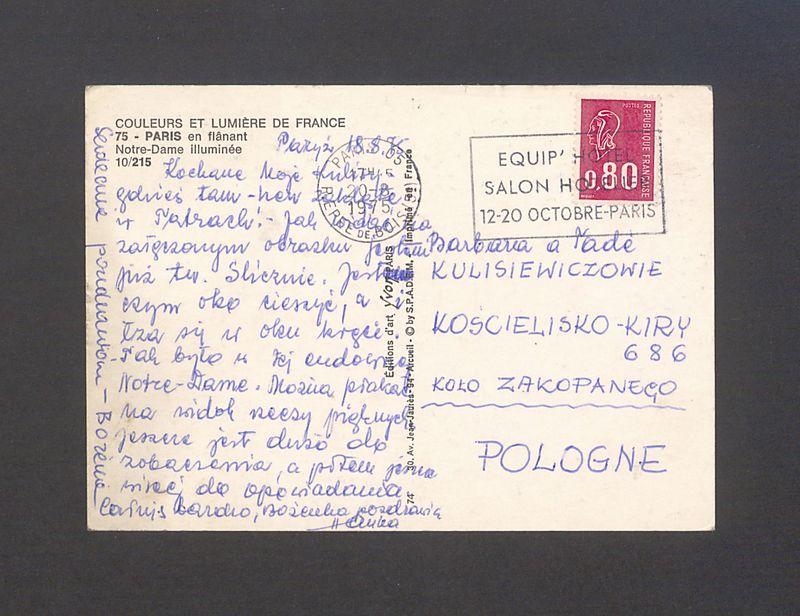 COULEURS ET LUMIÈRE DE FRANCE
75 - PARIS en flânant
Notre-Dame illuminée
10/215
Paryż 18.8.75
Kochane Moje
gdzieś tam - hen
w Tatrach! - Jak
załączonym obrazku jestem
już tu. Ślicznie. Jest
czym oko cieszyć, a i
łza się w oku kręci.
Tak było w tej cudownej
Notre-Dame. Można płakać
na widok rzeczy pięknych
jeszcze jest dużo do
zobaczenia, a potem jeszcze
więcej do opowiadania
Całuję bardzo, Bożenka pozdrawia
Serdecznie pozdrawiam - Bożena
PARIS
20-8
1975
Editions d'art Yvon PARIS
30, Av. Jean-Jaurès - 94 - Arcueil - © by S.P.A.D.E.M. Imprimé en France
74
EQUIP' HOTEL
SALON
12-20 OCTOBRE-PARIS
POSTES
REPUBLIQUE FRANÇAISE
0,80
Barbara a Tadé
KULISIEWICZOWIE
KOŚCIELISKO - KIRY
686
KOŁO ZAKOPANEGO
POLOGNE